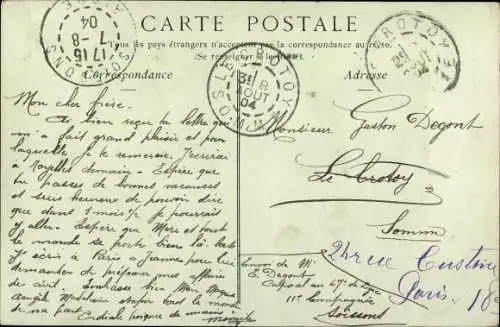 CARTE POSTALE
Tous les pays étrangers n'acceptent pas la correspondance au recto.
(Se renseigner à la
Correspondance
Adresse
LE CROTOY
AOUT
04
SOMME
17 15
7 - 8
04
Mon cher frère.
Ai bien reçu ta lettre qui
m'a fait grand plaisir et pour
laquelle je te remercie. J'écrirai
à Noyelles demain. Espère que
tu passes de bonnes vacances
et suis heureux de pouvoir dire
que dans 1 mois ½ je pourrais
y aller. Espère que Mère et tout
le monde se porte bien là-bas
J'ai écrit à Paris à Jeanne pour lui
demander de préparer mes affaires
de civil. Embrasse bien Mère
tout le monde
de ma part
Cordiale poignée de mains
Monsieur Gaston Degont
Le Crotoy
Somme
24 rue Custine
Paris. 18
Envoi de Mr
E. Degont
Caporal au 67e de ligne
11e Compagnie
Soissons